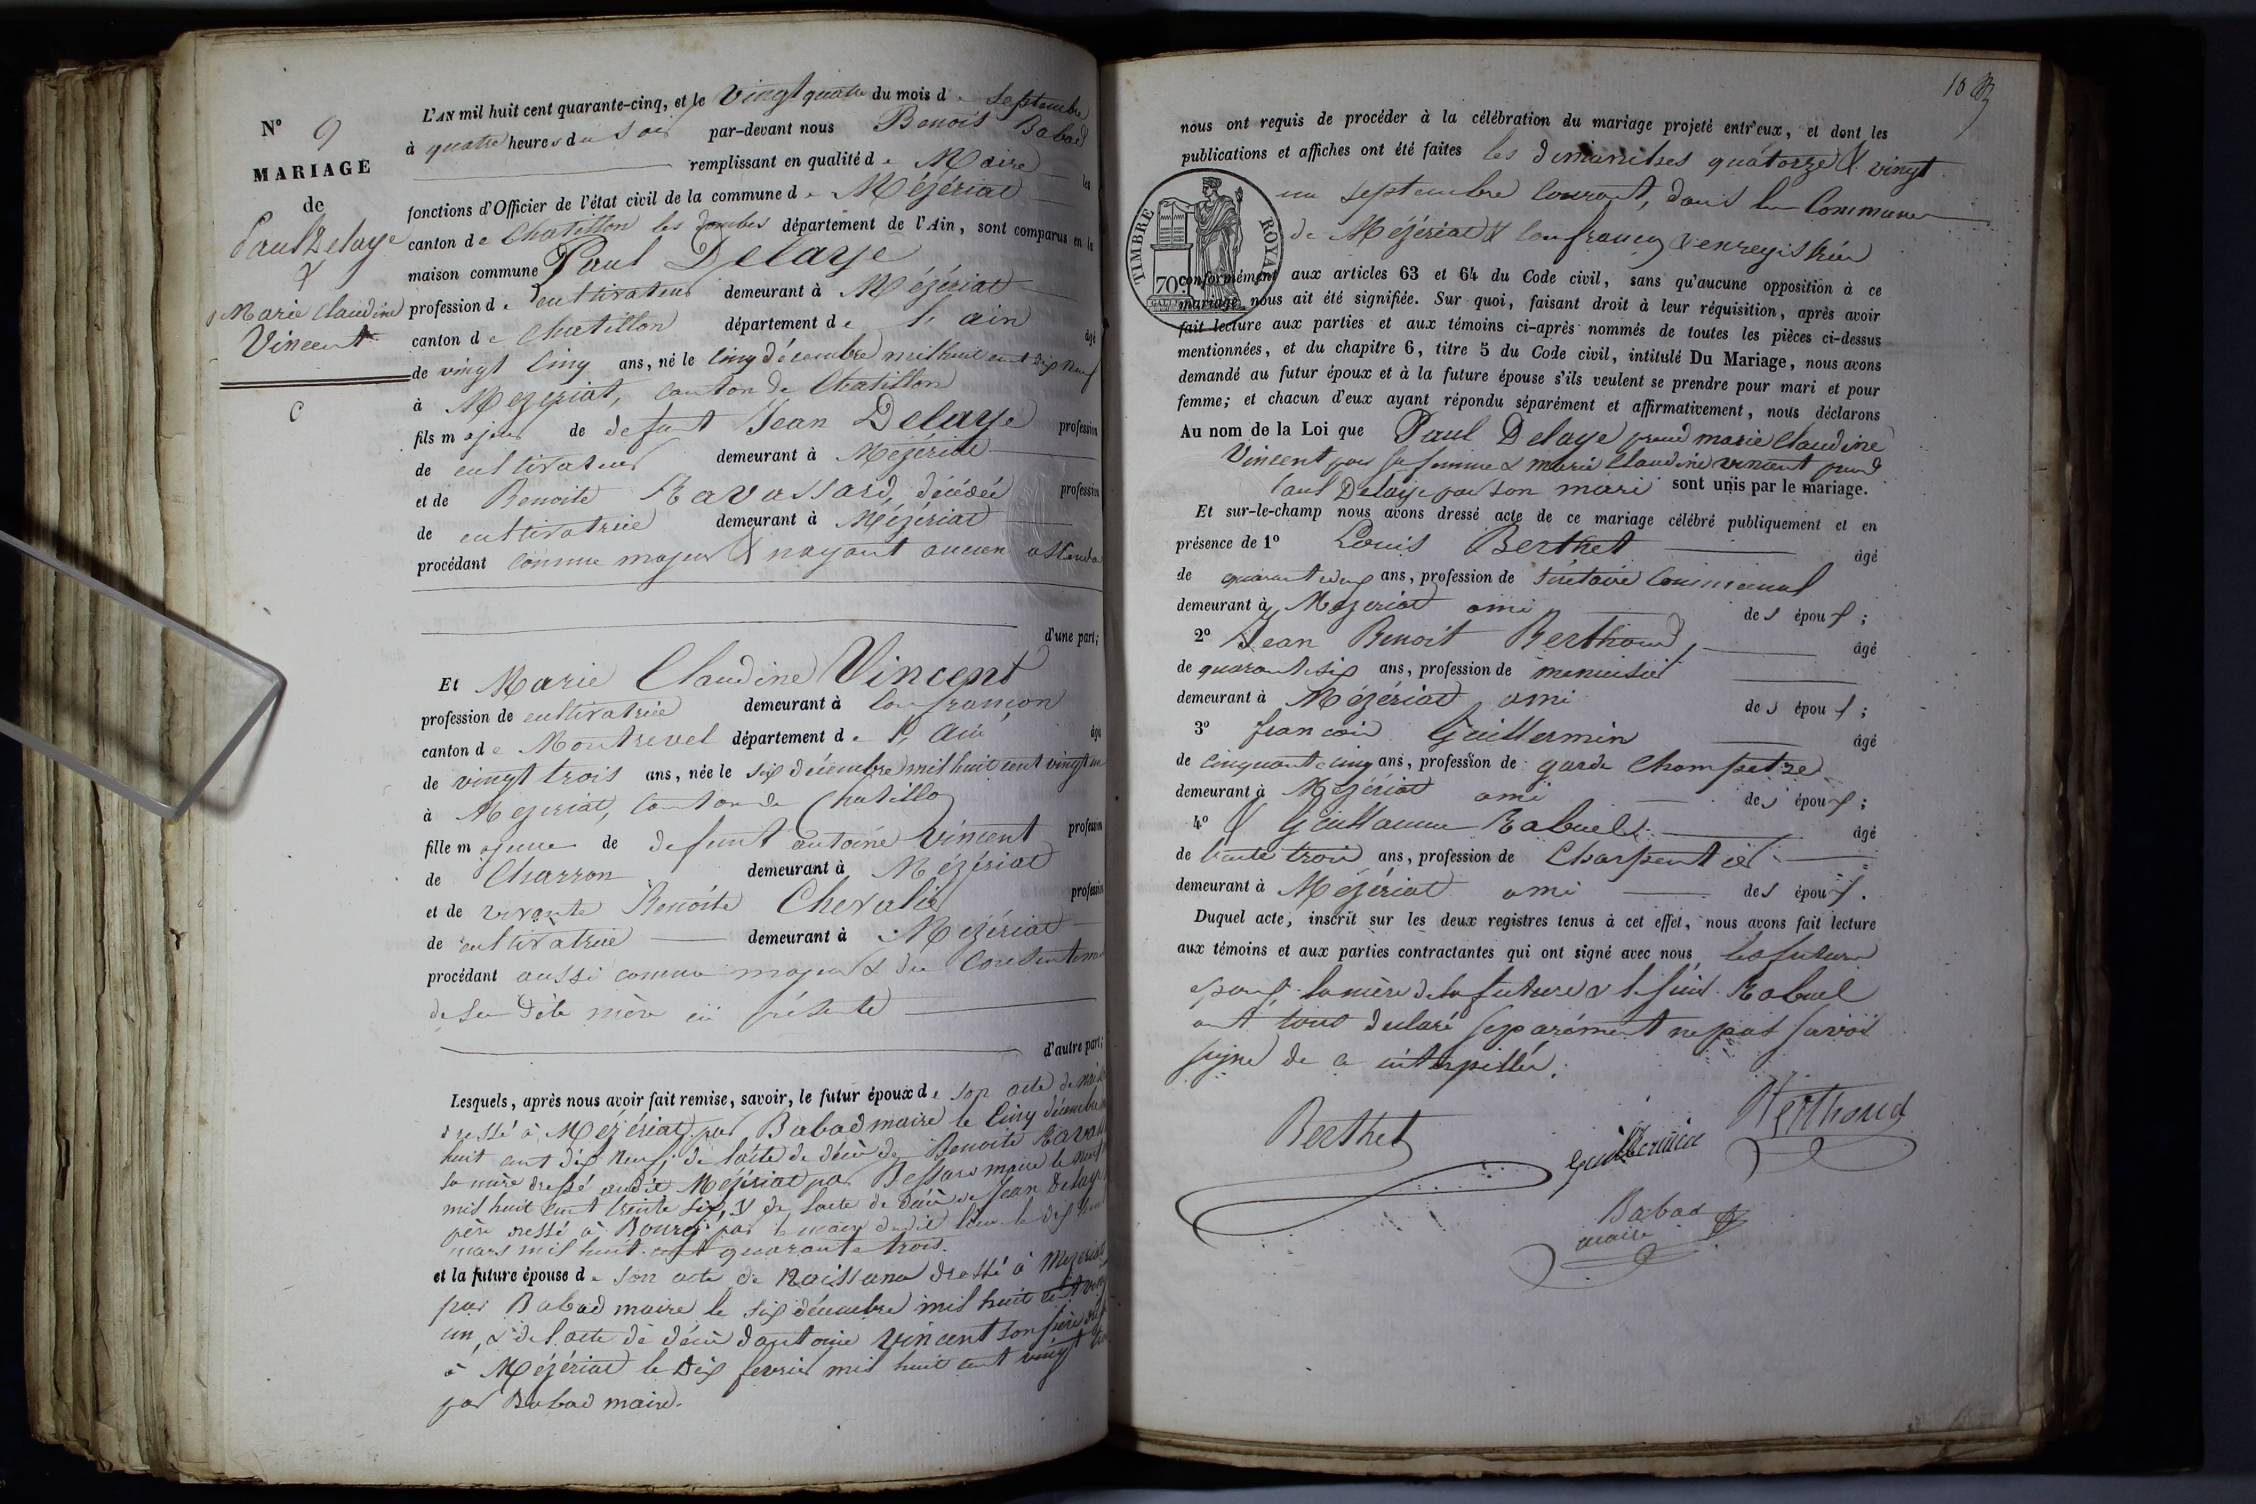 N° 9
MARIAGE
de
Paul Delaye
&
Marie Claudine
Vincent
C
L'AN mil huit cent quarante-cinq, et le vingt quatre du mois de septembre
à quatre heures du soir par-devant nous Benoit Babad
remplissant en qualité de Maire les
fonctions d'Officier de l'état civil de la commune de Mézériat
canton de Chatillon les dombes département de l'Ain, sont comparus en la
maison commune Paul Delaye
profession de cultivateur demeurant à Mézériat
canton de Chatillon département de l'ain âgé
de vingt cinq ans, né le cinq décembre mil huit cent dix neuf
à Mezeriat, canton de Chatillon
fils majeur de defunt Jean Delaye profession
de cultivateur demeurant à Mézériat
et de Benoite Ravassard, décédée profession
de cultivatrice demeurant à Mézériat
procédant comme majeur & n'ayant aucun
d'une part;
Et Marie Claudine Vincent
profession de cultivatrice demeurant à Confrançon
canton de Montrevel département de l'Ain âgée
de vingt trois ans, née le six décembre mil huit cent vingt un
à Mezeriat, canton de Chatillon
fille majeure de defunt antoine Vincent profession
de Charron demeurant à Mézériat
et de vivante Benoite Chevalier profession
de cultivatrice demeurant à Mézériat
procédant aussi comme majeure & du consentement
de sa dite mère ici présente
d'autre part;
Lesquels, après nous avoir fait remise, savoir, le futur époux de son acte de
dressé à Mézériat par Babad maire le cinq décembre
huit cent dix neuf; de l'acte de décès de Benoite
sa mère dressé audit Mézériat par maire le
mil huit cent trente six, & de l'acte de décès de Jean Delaye
père dressé à Bourg par le maire dudit lieu le dix
mars mil huit cent quarante trois.
et la future épouse de son acte de naissance dressé à Mezeriat
par Babad maire le six décembre mil huit cent
un, & de l'acte de décès d'antoine Vincent son père
à Mézériat le dix fevrier mil huit cent vingt
par Babad maire.
10
nous ont requis de procéder à la célébration du mariage projeté entr'eux, et dont les
publications et affiches ont été faites les dimanches quatorze & vingt
un septembre courant, dans les Communes
de Mézériat & Confrançon & enregistrées
TIMBRE ROYAL
70 c.
conformément aux articles 63 et 64 du Code civil, sans qu'aucune opposition à ce
mariage nous ait été signifiée. Sur quoi, faisant droit à leur réquisition, après avoir
fait lecture aux parties et aux témoins ci-après nommés de toutes les pièces ci-dessus
mentionnées, et du chapitre 6, titre 5 du Code civil, intitulé Du Mariage, nous avons
demandé au futur époux et à la future épouse s'ils veulent se prendre pour mari et pour
femme; et chacun d'eux ayant répondu séparément et affirmativement, nous déclarons
Au nom de la Loi que Paul Delaye prend marie Claudine
Vincent pour sa femme & marie Claudine vincent prend
Paul Delaye pour son mari sont unis par le mariage.
Et sur-le-champ nous avons dressé acte de ce mariage célébré publiquement et en
présence de 1° Louis Berthet âgé
de quarante deux ans, profession de secrétaire Communal
demeurant à Mezeriat ami des époux;
2° Jean Benoit Berthoud, âgé
de quarante six ans, profession de menuisier
demeurant à Mézériat ami des époux;
3° françois Guillermin âgé
de cinquante cinq ans, profession de garde Champetre
demeurant à Mézériat ami des époux;
4° & Guillaume Rabuel âgé
de trente trois ans, profession de Charpentier
demeurant à Mézériat ami des époux.
Duquel acte, inscrit sur les deux registres tenus à cet effet, nous avons fait lecture
aux témoins et aux parties contractantes qui ont signé avec nous, les futurs
epoux la mère de la future & le sieur Rabuel
ont tous declaré separément ne pas savoir
signer de ce interpellés.
Berthet
Guillermin
Berthoud
Babad
maire